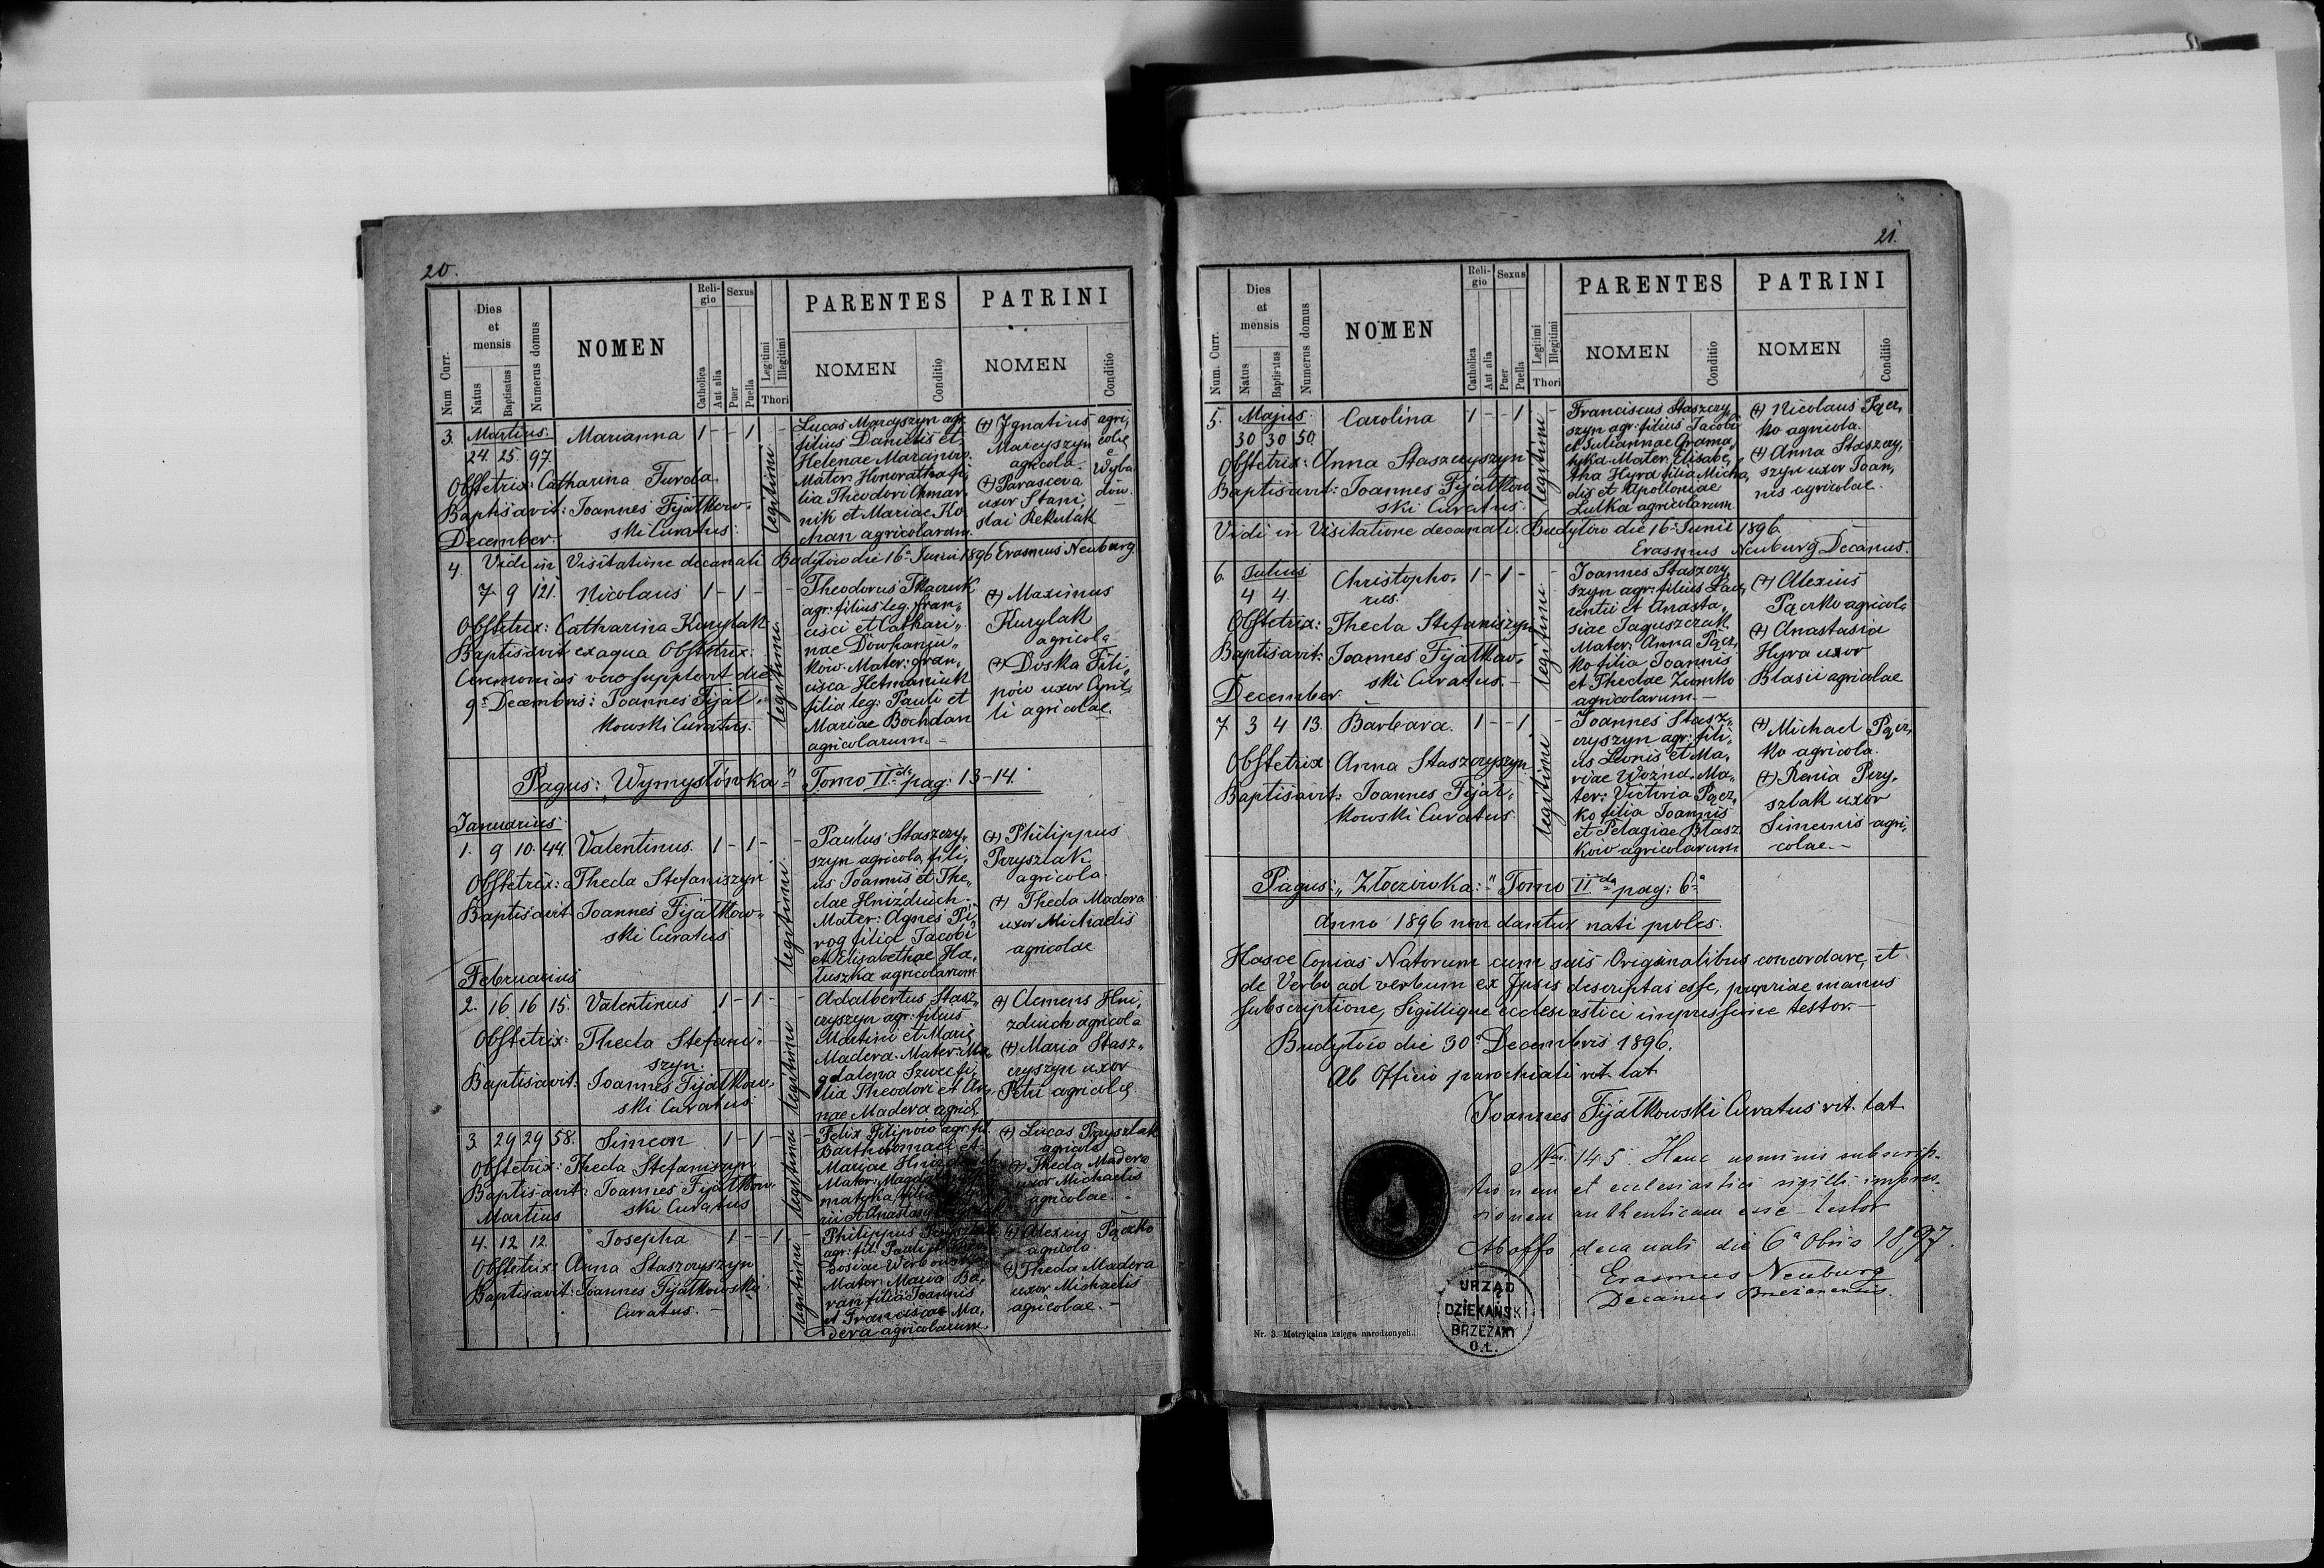 20.
Num Curr.
Dies
et
mensis
Natus
Baptisatus
Numerus domus
NOMEN
Reli-
gio
Catholica
Aut alia
Sexus
Puer
Puella
Legitimi
Illegitimi
Thori
PARENTES
NOMEN
Conditio
PATRINI
NOMEN
Conditio
3. Martius.
24. 25 97. Marianna 1 - - 1 -
Obstetrix: Catharina Turda.
Baptisavit: Joannes Fijałkow-
ski Curatus.
legitimi
Lucas Marcyszyn agr.
filius Danielis et
Helenae
Mater: Honoratha fi,
lia Theodori
nik et Mariae Ko
chan agricolarum.
(+) Ignatius agri,
Marcyszyn colae
agricola. e
(+) Parasceva Wyba
uxor Stani, dów.
slai Rekulak
December.
4. Vidi in Visitatione decanali Budyłów die 16a Junii 1896 Erasmus Neuburg
7 9 121. Nicolaus 1 - 1 - -
Obstetrix: Catharina Kurylak
Baptisavit ex aqua Obstetrix.
Ceremonias vero supplevit die
9a Decembris: Joannes Fijał-
kowski Curatus.
legitimi.
Theodorus Tkaczuk
agr: filius leg. Fran„
cisci et Cathari„
nae Dowhaniu„
ków. Mater: Fran„
cisca Hetmaniuk
filia leg: Pauli et
Mariae Bochdan
agricolarum. -
(+) Maximus
Kurylak
agricola
(+) Doska Fili„
pów uxor Cyril,
li agricolae.
Pagus: „Wymysłówka" Tomo IIdo pag: 13-14.
Januarius
1. 9 10. 44. Valentinus. 1 - 1 - -
Obstetrix: Thecla Stefaniszyn
Baptisavit Joannes Fijałkow„
ski Curatus
legitimi.
Paulus Staszczy„
szyn agricola, fili,
us Joannis et The„
clae Hnizdiuch.
Mater: Agnes Pi„
rog filia Jacobi
et Elisabethae Ha„
łuszka agricolarum
(+) Philippus
Pryszlak
agricola.
(+) Thecla Madera
uxor Michaelis
agricolae
Februarius
2. 16. 16 15. Valentinus 1 - 1 - -
Obstetrix: Thecla Stefani-
szyn.
Baptisavit: Joannes Fijałkow,
ski Curatus
legitimi
Adalbertus Stasz„
czyszyn agr: filius
Martini et Marie
Madera. Mater: Ma„
gdalena Szwec fi„
lia Theodori et An,
nae Madera agric.
(+) Clemens Hni,
zdiuch agricola
(+) Maria Stasz„
czyszyn uxor
Petri agricolae.
3 29 29 58. Simeon 1 - 1 - -
Obstetrix: Thecla Stefaniszyn
Baptisavit: Joannes Fijałkow„
ski Curatus
legitimi
Felix Filipów agr: fil.
Bartholomaei et
Mariae
Mater:
matyka filia
rii et Anastasy
(+) Lucas Pryszlak
agricola
(+) Thecla Madera
uxor Michaelis
agricolae. -
Martius
4. 12 12. Josepha 1 - - 1 -
Obstetrix: Anna Staszczyszyn
Baptisavit: Joannes Fijałkowski
Curatus. -
legitimi
Philippus
agr: fil: Pauli et
dosiae
Mater: Maria Ba,
ran filia Joannis
et Franciscae Ma,
dera agricolarum.
(+) Alexius Pączko
agricola.
(+) Thecla Madera
uxor Michaelis
agricolae. -
21.
Num. Curr.
Dies
et
mensis
Natus
Baptisatus
Numerus domus
NOMEN
Reli-
gio
Catholica
Aut alia
Sexus
Puer
Puella
Legitimi
Illegitimi
Thori
PARENTES
NOMEN
Conditio
PATRINI
NOMEN
Conditio
5. Majus.
30 30 50. Carolina 1 - - 1 -
Obstetrix: Anna Staszczyszyn
Baptisavit: Joannes Fijałkow
ski Curatus.
legitimi
Franciscus Staszczy„
szyn agr: filius Jacobi
et Juliannae Grama„
tyka Mater: Elisabe,
tha Hyra filia Micha,
elis et Apolloniae
Lulka agricolarum.
(+) Nicolaus Pącz,
ko agricola.
(+) Anna Staszczy,
szyn uxor Joan,
nis agricolae.
Vidi in Visitatione decanali. Budyłów die 16 Junii 1896.
Erasmus Neuburg Decanus.
6. Julius
4 4. Christopho- 1 - 1 - -
rus.
Obstetrix: Thecla Stefaniszyn
Baptisavit: Joannes Fijałkow-
ski Curatus. -
legitimi
Joannes Staszczy„
szyn agr: filius Lau„
rentii et Anasta,
siae Jaguszczak
Mater: Anna Pącz,
ko filia Joannis
et Theclae Zumko
agricolarum. -
(+) Alexius
Pączko agricola
(+) Anastasia
Hyra uxor
Blasii agricolae
December.
7 3 4 13. Barbara. 1 - - 1 -
Obstetrix Anna Staszczyszyn
Baptisavit: Joannes Fijał„
kowski Curatus
legitimi
Joannes Stasz„
czyszyn agr: fili„
us Leonis et Ma„
riae Wozna. Ma„
ter: Victoria Pącz,
ko filia Joannis
et Pelagiae Błasz
ków agricolarum
(+) Michael Pącz,
ko agricola.
(+) Xenia Pry„
szlak uxor
Simeonis agri,
colae. -
Pagus: „Złoczówka:" Tomo IIdo pag: 6a
Anno 1896 non dantur nati proles.
Hasce Copias Natorum cum suis Originalibus concordare, et
de Verbo ad verbum ex Ipsis descriptas esse, propriae manus
subscriptione, Sigillique ecclesiastici impressione testor. -
Budyłów die 30a Decembris 1896.
Ab Officio parochiali rit. lat
Joannes Fijałkowski Curatus rit. lat
Nr. 145. Hanc nominis subscrip-
tionem et ecclesiastici sigilli impres-
sionem authenticam esse testor
Ab offo decanali die 6a 1897.
Erasmus Neuburg
Decanus Brzezanensis.
URZĄD
DZIEKAŃSKI
BRZEŻANY
O.Ł.
Nr. 3. Metrykalna księga narodzonych.